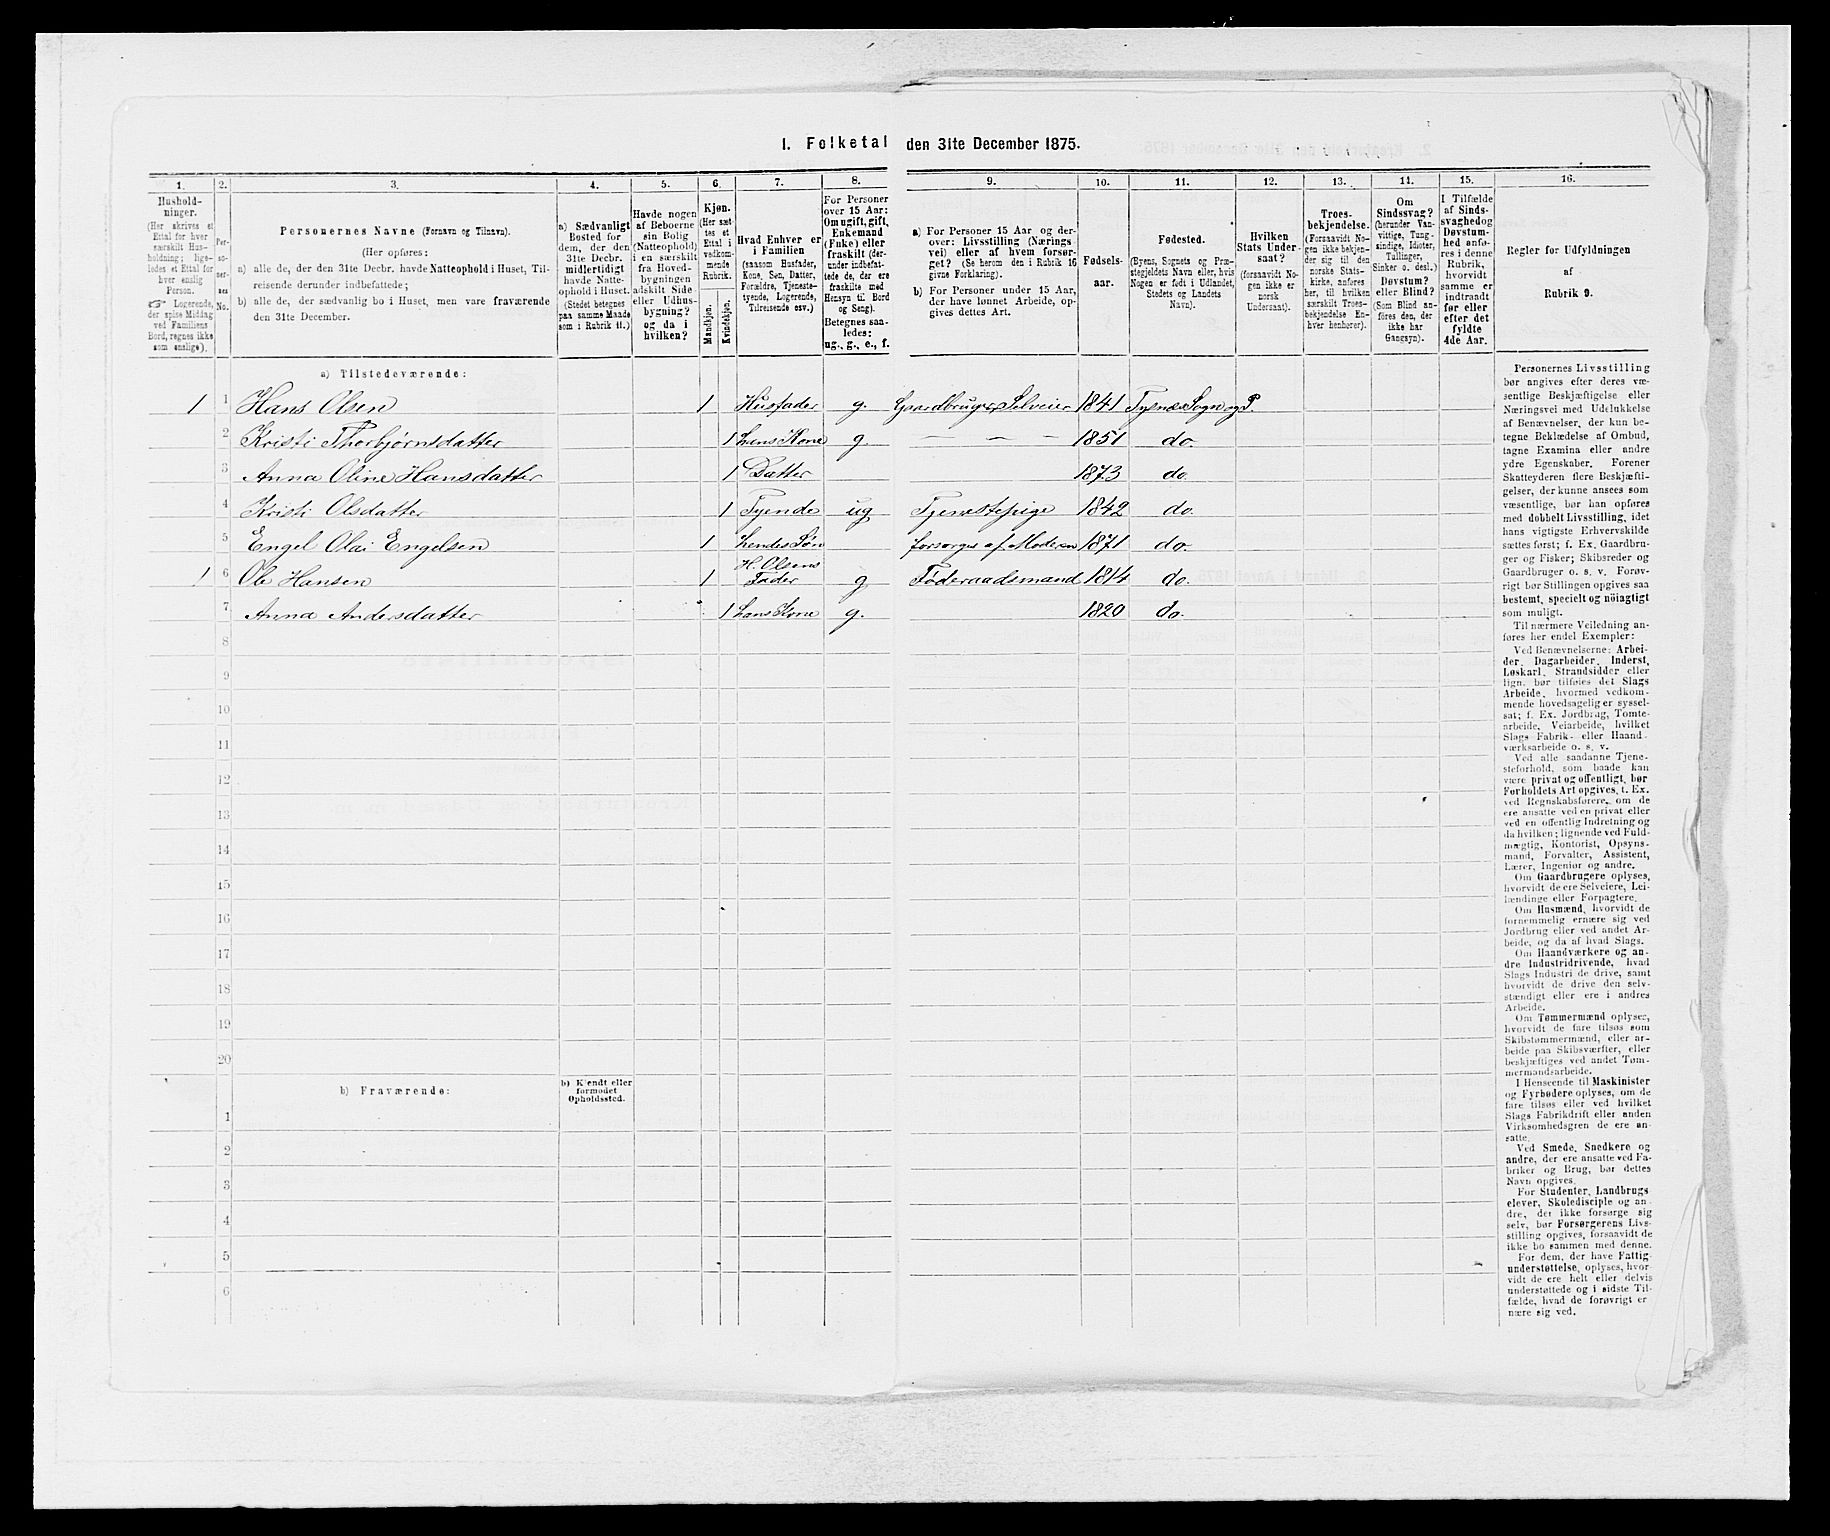 1. Folketal den 31te December 1875.
1. 2. 3. 4. 5. 6. 7. 8. 9. 10. 11. 12. 13. 14. 15. 16.
Hushold-
ninger.
(Her skrives et
Ettal for hver
særskilt Hus-
holdning; lige-
ledes et Ettal for
hver enslig
Person.
☞ Logerende,
der spise Middag
ved Familiens
Bord, regnes ikke
som enslige).
Per-
so-
ner-
nes
No.
Personernes Navne (Fornavn og Tilnavn).
(Her opføres:
a) alle de, der den 31te Decbr. havde Natteophold i Huset, Til-
reisende derunder indbefattede;
b) alle de, der sædvanlig bo i Huset, men vare fraværende
den 31te December.
a) Sædvanligt
Bosted for
dem, der den
31te Decbr.
midlertidigt
havde Natte-
ophold i Huset.
(Stedet betegnes
paa samme Maade
som i Rubrik 11.)
Havde nogen
af Beboerne
sin Bolig
(Natteophold)
i en særskilt
fra Hoved-
bygningen
adskilt Side-
eller Udhus-
bygning?
og da i
hvilken?
Kjøn.
(Her sæt-
tes et
Ettal i
vedkom-
mende
Rubrik.
Mandkjøn.
Kvindekjøn.
Hvad Enhver er
i Familien
(saasom Husfader,
Kone, Søn, Datter,
Forældre, Tjeneste-
tyende, Logerende,
Tilreisende osv.)
For Personer
over 15 Aar:
Om ugift, gift,
Enkemand
(Enke) eller
fraskilt (der-
under indbefat-
tede de, der ere
fraskilte med
Hensyn til Bord
og Seng).
Betegnes saa-
ledes:
ug., g., e., f.
a) For Personer 15 Aar og der-
over: Livsstilling (Nærings-
vei) eller af hvem forsør-
get? (Se herom den i Rubrik 16
givne Forklaring).
b) For Personer under 15 Aar,
der have lønnet Arbeide, op-
gives dettes Art.
Fødsels-
aar.
Fødested.
(Byens, Sognets og Præ-
stegjeldets Navn eller, hvis
Nogen er født i Udlandet,
Stedets og Landets
Navn).
Hvilken
Stats Under-
saat?
(forsaavidt No-
gen ikke er
norsk
Undersaat).
Troes-
bekjendelse.
(Forsaavidt No-
gen ikke bekjen-
der sig til den
norske Stats-
kirke, anføres
her, til hvilken
særskilt Troes-
bekjendelse En-
hver henhører).
Om
Sindssvag?
(herunder Van-
vittige, Tung-
sindige, Idioter,
Tullinger,
Sinker o. desl.)
Døvstum?
eller Blind?
(Som Blind an-
føres den, der
ikke har
Gangsyn).
I Tilfælde
af Sinds-
svaghed og
Døvstum-
hed anfø-
res i denne
Rubrik,
hvorvidt
samme er
indtraadt
før eller
efter det
fyldte
4de Aar.
Regler for Udfyldningen
af
Rubrik 9.
a) Tilstedeværende:
1 1 Hans Olsen 1 Husfader g. Gaardbruger Selveier 1841 Tysnæs Sogn og P.
2 Kristi Thorbjørnsdatter 1 hans Kone g. — — — 1851 do.
3 Anna Oline Hansdatter 1 Datter 1873 do.
4 Kristi Olsdatter 1 Tyende ug Tjenestepige 1842 do.
5 Engel Olai Engelsen 1 hendes Søn forsørges af Moderen 1871 do.
1 6 Ole Hansen 1 H. Olsens Fader g Føderaadsmand 1814 do.
7 Anna Andersdatter 1 hans Kone g. 1820 do.
8
9
10
11
12
13
14
15
16
17
18
19
20
b) Fraværende:
b) Kjendt eller
formodet
Opholdssted.
1
2
3
4
5
6
Personernes Livsstilling
bør angives efter deres væ-
sentlige Beskjæftigelse eller
Næringsvei med Udelukkelse
af Benævnelser, der kun be-
tegne Beklædelse af Ombud,
tagne Examina eller andre
ydre Egenskaber. Forener
Skatteyderen flere Beskjæfti-
gelser, der kunne ansees som
væsentlige, bør han opføres
med dobbelt Livsstilling, idet
hans vigtigste Erhvervskilde
sættes først; f. Ex. Gaardbru-
ger og Fisker; Skibsreder og
Gaardbruger o. s. v. Forøv-
rigt bør Stillingen opgives saa
bestemt, specielt og nøiagtigt
som muligt.
Til nærmere Veiledning an-
føres her endel Exempler:
Ved Benævnelserne: Arbei-
der, Dagarbeider, Inderst,
Løskarl, Strandsidder eller
lign. bør tilføies det Slags
Arbeide, hvormed vedkom-
mende hovedsagelig er syssel-
sat; f. Ex. Jordbrug, Tomte-
arbeide, Veiarbeide, hvilket
Slags Fabrik- eller Haand-
værksarbeide o. s. v.
Ved alle saadanne Tjene-
steforhold, som baade kan
være privat og offentligt, bør
Forholdets Art opgives, f. Ex.
ved Regnskabsførere, om de
ere ansatte ved en privat eller
ved en offentlig Indretning og
da hvilken; lignende ved Fuld-
mægtig, Kontorist, Opsyns-
mand, Forvalter, Assistent,
Lærer, Ingeniør og andre.
Om Gaardbrugere oplyses,
hvorvidt de ere Selveiere, Lei-
lændinge eller Forpagtere.
Om Husmænd, hvorvidt de
fornemmelig ernære sig ved
Jordbrug eller ved andet Ar-
beide, og da af hvad Slags.
Om Haandværkere og an-
dre Industridrivende, hvad
Slags Industri de drive, samt
hvorvidt de drive den selv-
stændigt eller ere i andres
Arbeide.
Om Tømmermænd oplyses,
hvorvidt de fare tilsøs som
Skibstømmermænd, eller ar-
beide paa Skibsværfter, eller
beskjæftiges ved andet Tøm-
mermandsarbeide.
I Henseende til Maskinister
og Fyrbødere oplyses, om de
fare tilsøs eller ved hvilket
Slags Fabrikdrift eller anden
Virksomhedsgren de ere an-
satte.
Ved Smede, Snedkere og
andre, der ere ansatte ved Fa-
briker og Brug, bør dettes
Navn opgives.
For Studenter, Landbrugs
elever, Skoledisciple og an-
dre, der ikke forsørge sig
selv, bør Forsørgerens Livs-
stilling opgives, forsaavidt de
ikke bo sammen med denne.
For dem, der have Fattig-
understøttelse, oplyses, hvor-
vidt de ere helt eller delvis
understøttede og i sidste Til-
fælde, hvad de forøvrigt er-
nære sig ved.